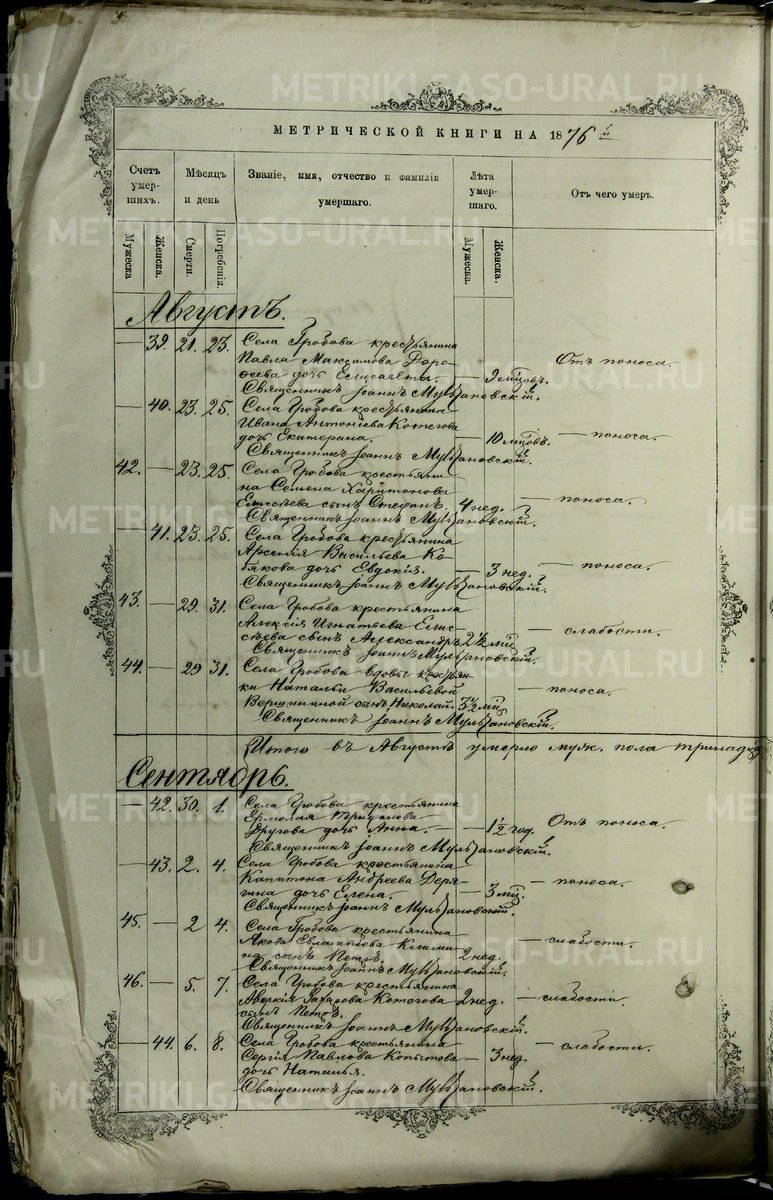 МЕТРИЧЕСКОЙ КНИГИ НА 1876 г.
Счетъ умерших. Мѣсяцъ и день Званіе, имя, отчество и фамилія умершаго. Лѣта умершаго. Отъ чего умеръ.
Мужеска Женска. Смерти. Погребенія. Мужеска. Женска.
Августъ.
— 39. 21. 23. Села Гробова крестьянина
Павла Максимова Доро-
ѳеева дочь Елисавета. — 9 мѣцовъ. Отъ поноса.
Священникъ Іоаннъ
— 40. 23. 25. Села Гробова крестьянина
Ивана Антоніева Котегова
дочь Екатерина. — 10 мѣцовъ. — поноса.
Священникъ Іоаннъ
42. — 23. 25. Села Гробова крестьяни-
на Семена Харитонова
Елисѣева сынъ Стефанъ. 4 нед. — поноса.
Священникъ Іоаннъ
— 41. 23. 25. Села Гробова крестьянина
Арсенія Васильева Ко-
бякова дочь Евдокія. — 3 нед. — поноса.
Священникъ Іоаннъ
43. — 29. 31. Села Гробова крестьянина
Алексія Игнатьева Елис-
ѣева сынъ Александръ 2½ мѣц. — слабости.
Священникъ Іоаннъ
44. — 29 31. Села Гробова вдовы крестьян-
ки Натальи Васильевой
Вершининой сынъ Николай. 3½ мѣц. — поноса.
Священникъ Іоаннъ
Итого въ Августѣ умерло муж. пола тринадц
Сентябрь.
— 42. 30. 1. Села Гробова крестьянина
Ермолая Трифанова
Другова дочь Анна. — 1½ год. Отъ поноса.
Священникъ Іоаннъ
— 43. 2. 4. Села Гробова крестьянина
Капитона Андреева Деря-
гина дочь Елена. — 3 мѣц. — поноса.
Священникъ Іоаннъ
45. — 2 4. Села Гробова крестьянина
Якова Евлампіева Клими-
на сынъ Петръ. 2 нед. — слабости.
Священникъ Іоаннъ
46. — 5. 7. Села Гробова крестьянина
Аверкія Захарова Котегова 2 нед. — слабости.
сынъ Петръ.
Священникъ Іоаннъ
— 44. 6. 8. Села Гробова крестьянина
Сергія Павлова Копытова — 3 нед. — слабости.
дочь Наталья.
Священникъ Іоаннъ
METRIKI.GASO-URAL.RU